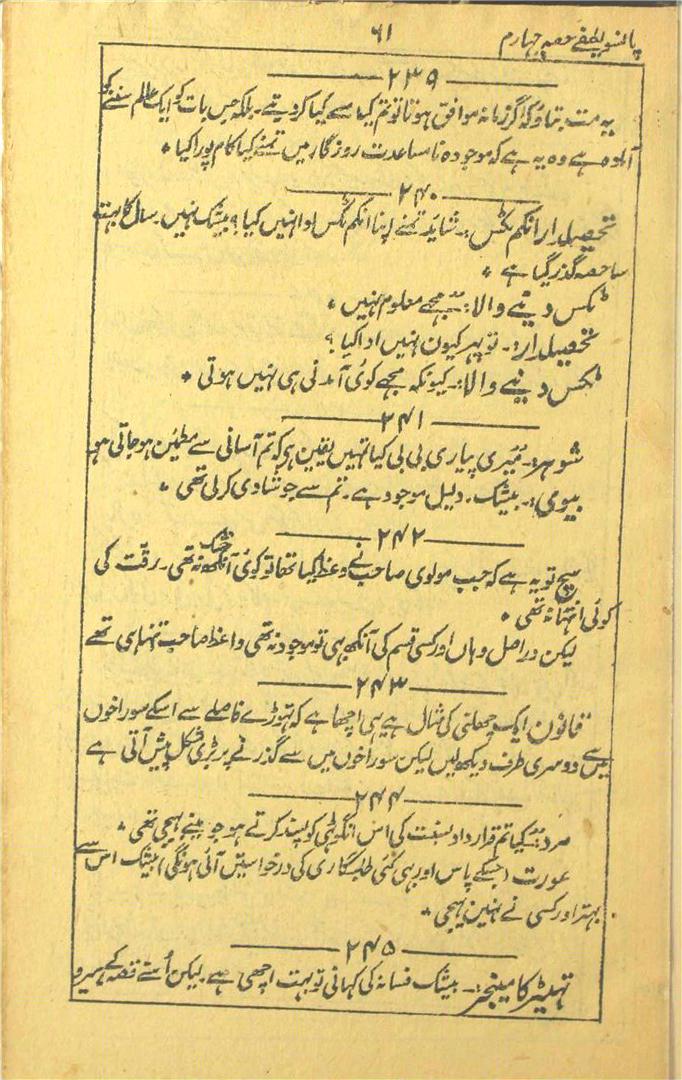 پانسو لطیفے حصہ چہارم
۶۱
۲۳۹
یہ مت بتاؤ کہ اگر زمانہ موافق ہوتا تو تم کیا سے کیا کر دیتے۔ بلکہ جس بات کو ایک عالم سننے کو
آمادہ ہے وہ یہ ہے کہ موجودہ نا مساعدت روزگار میں تمنے کیا کام پورا کیا *
۲۴۰
تحصیلدار انکم ٹکس:۔ شاید تمنے اپنا انکم ٹکس ادا نہیں کیا؟ بیشک نہیں۔ سال کا بہت
سا حصہ گذر گیا ہے *
ٹکس دینے والا:۔ مجھے معلوم نہیں *
تحصیلدار:۔ تو پہر کیون نہیں ادا کیا؟
ٹکس دینے والا:۔ کیونکہ مجھے کوئی آمدنی ہی نہیں ہوتی *
۲۴۱
شوہر:۔ میری پیاری بی بی کیا تمہیں یقین ہی کہ تم آسانی سے مطمئن ہو جاتی ہو
بیوی:۔ بیشک۔ دلیل موجود ہے۔ تم سے جو شادی کر لی تھی *
۲۴۲
سچ تو یہ ہے کہ جب مولوی صاحب نے وعظ کیا تھا تو کوئی آنکھ خشک نہ تھی۔ رقّت کی
کوئی انتہا نہ تھی *
لیکن در اصل وہاں اور کسی قسم کی آنکھ ہی تو موجود نہ تھی واعظ صاحب تنہا ہی تھے
۲۴۳
قانون ایک چھلنی کی مثال ہے یہی اچھا ہے کہ تہوڑے فاصلے سے اسکے سوراخوں
میں سے دوسری طرف دیکھ لیں لیکن سوراخوں میں سے گذرنے پر بڑی مشکل پیش آتی ہے
۲۴۴
مرد:۔ کیا تم قرارداد نسبت کی اس انگوٹہی کو پسند کرتے ہو جو مینے بہیجی تھی *
عورت (جسکے پاس اور بہی کئی طلبگاری کی درخواستیں آئی ہونگی) بیشک اس سے
بہتر اور کسی نے نہین بہیجی *
۲۴۵
تہیٹر کا مینجر:۔ بیشک فسانہ کی کہانی تو بہت اچھی ہے۔ لیکن اُسّے قصہ کے ہیرو